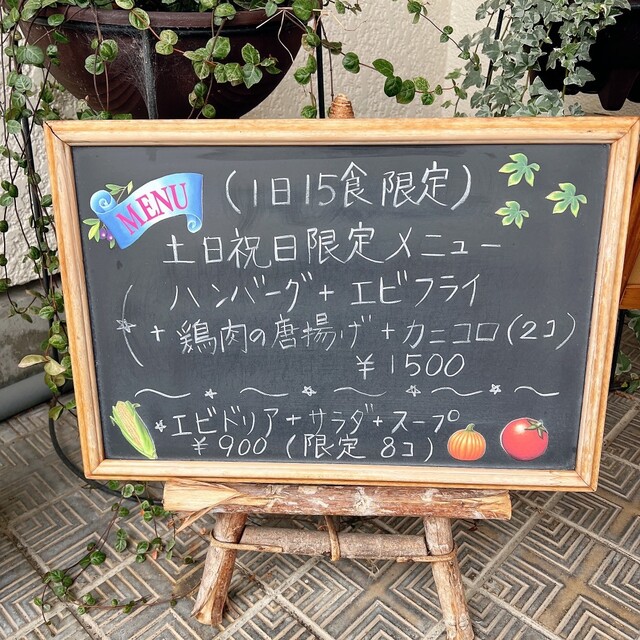 MENU
(1日15食限定)
土日祝日限定メニュー
ハンバーグ+エビフライ
+鶏肉の唐揚げ+カニコロ(2コ)
¥1500
エビドリア+サラダ+スープ
¥900(限定8コ)